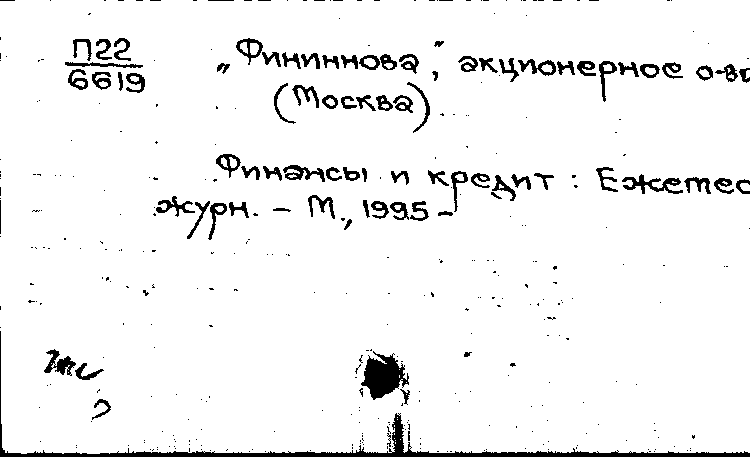 П22
6619
„Фининнова", акционерное о-во
(Москва)
Финансы и кредит : Ежемес
журн. – М., 1995 –